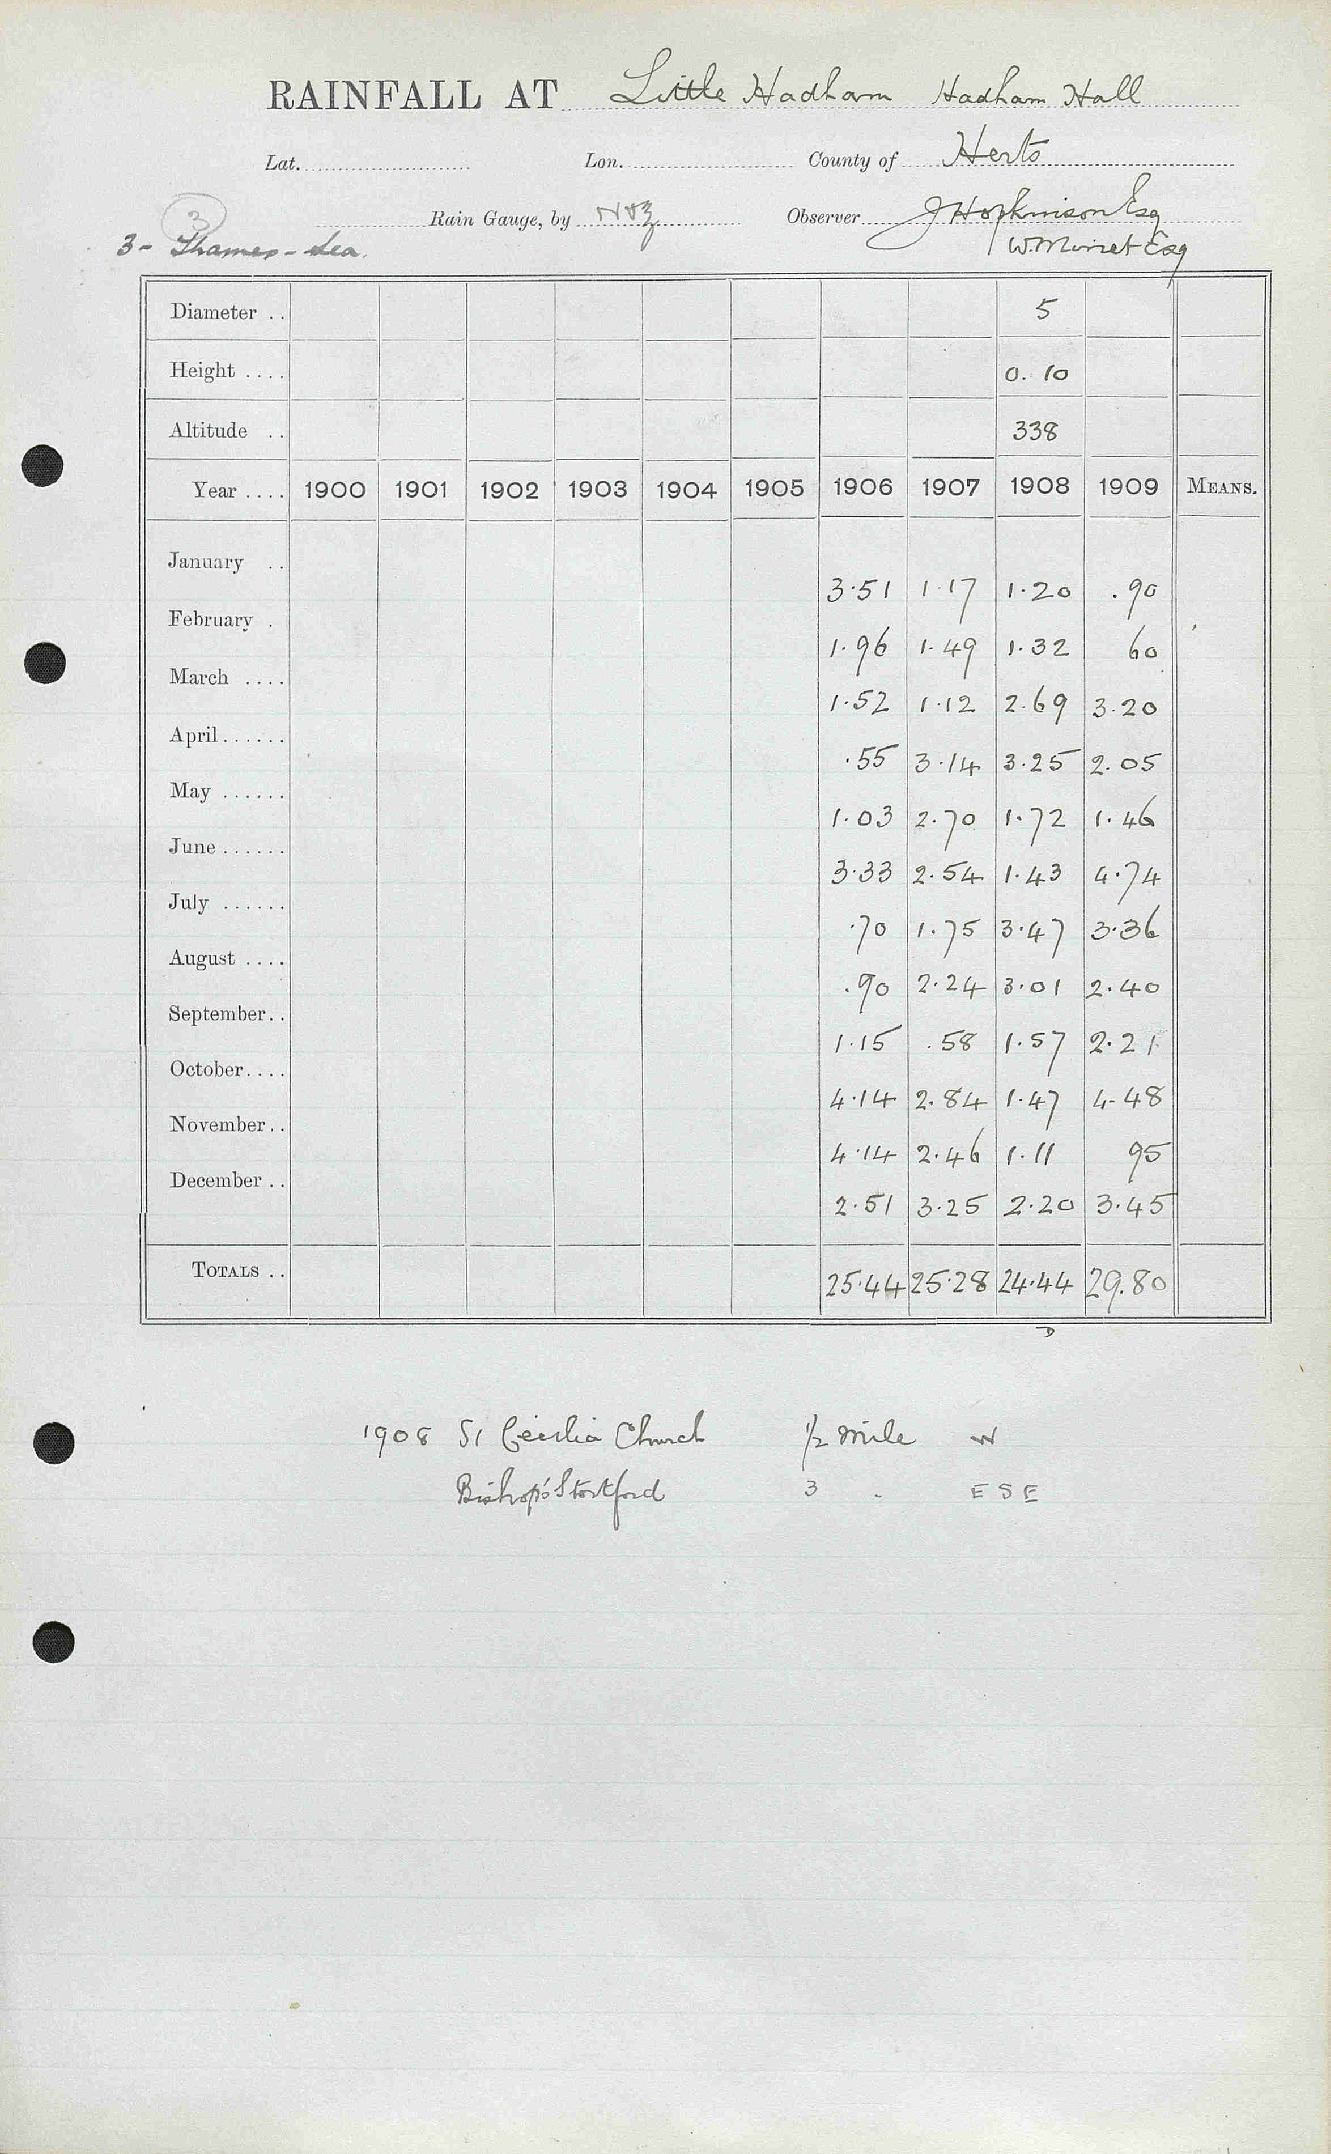 RAINFALL AT Little Hadham Hadham Hall
Lat. Lon. County of Herts
Rain Gauge, by N&Z Observer J Hopkinson Esq
3
3 - Thames - Sea. W. Minet Esq
Diameter .. 5
Height .... 0. 10
Altitude .. 338
Year .... 1900 1901 1902 1903 1904 1905 1906 1907 1908 1909 MEANS.
January .. 3.51 1.17 1.20 .90
February . 1.96 1.49 1.32 60
March .... 1.52 1.12 2.69 3.20
April...... .55 3.14 3.25 2.05
May ...... 1.03 2.70 1.72 1.46
June ...... 3.33 2.54 1.43 4.74
July ...... .70 1.75 3.47 3.36
August .... .90 2.24 3.01 2.40
September.. 1.15 .58 1.57 2.21
October.... 4.14 2.84 1.47 4.48
November.. 4.14 2.46 1.11 95
December .. 2.51 3.25 2.20 3.45
TOTALS .. 25.44 25.28 24.44 29.80
1908 St Cecilia Church 1/2 mile W
Bishop's Stortford 3 . E S E